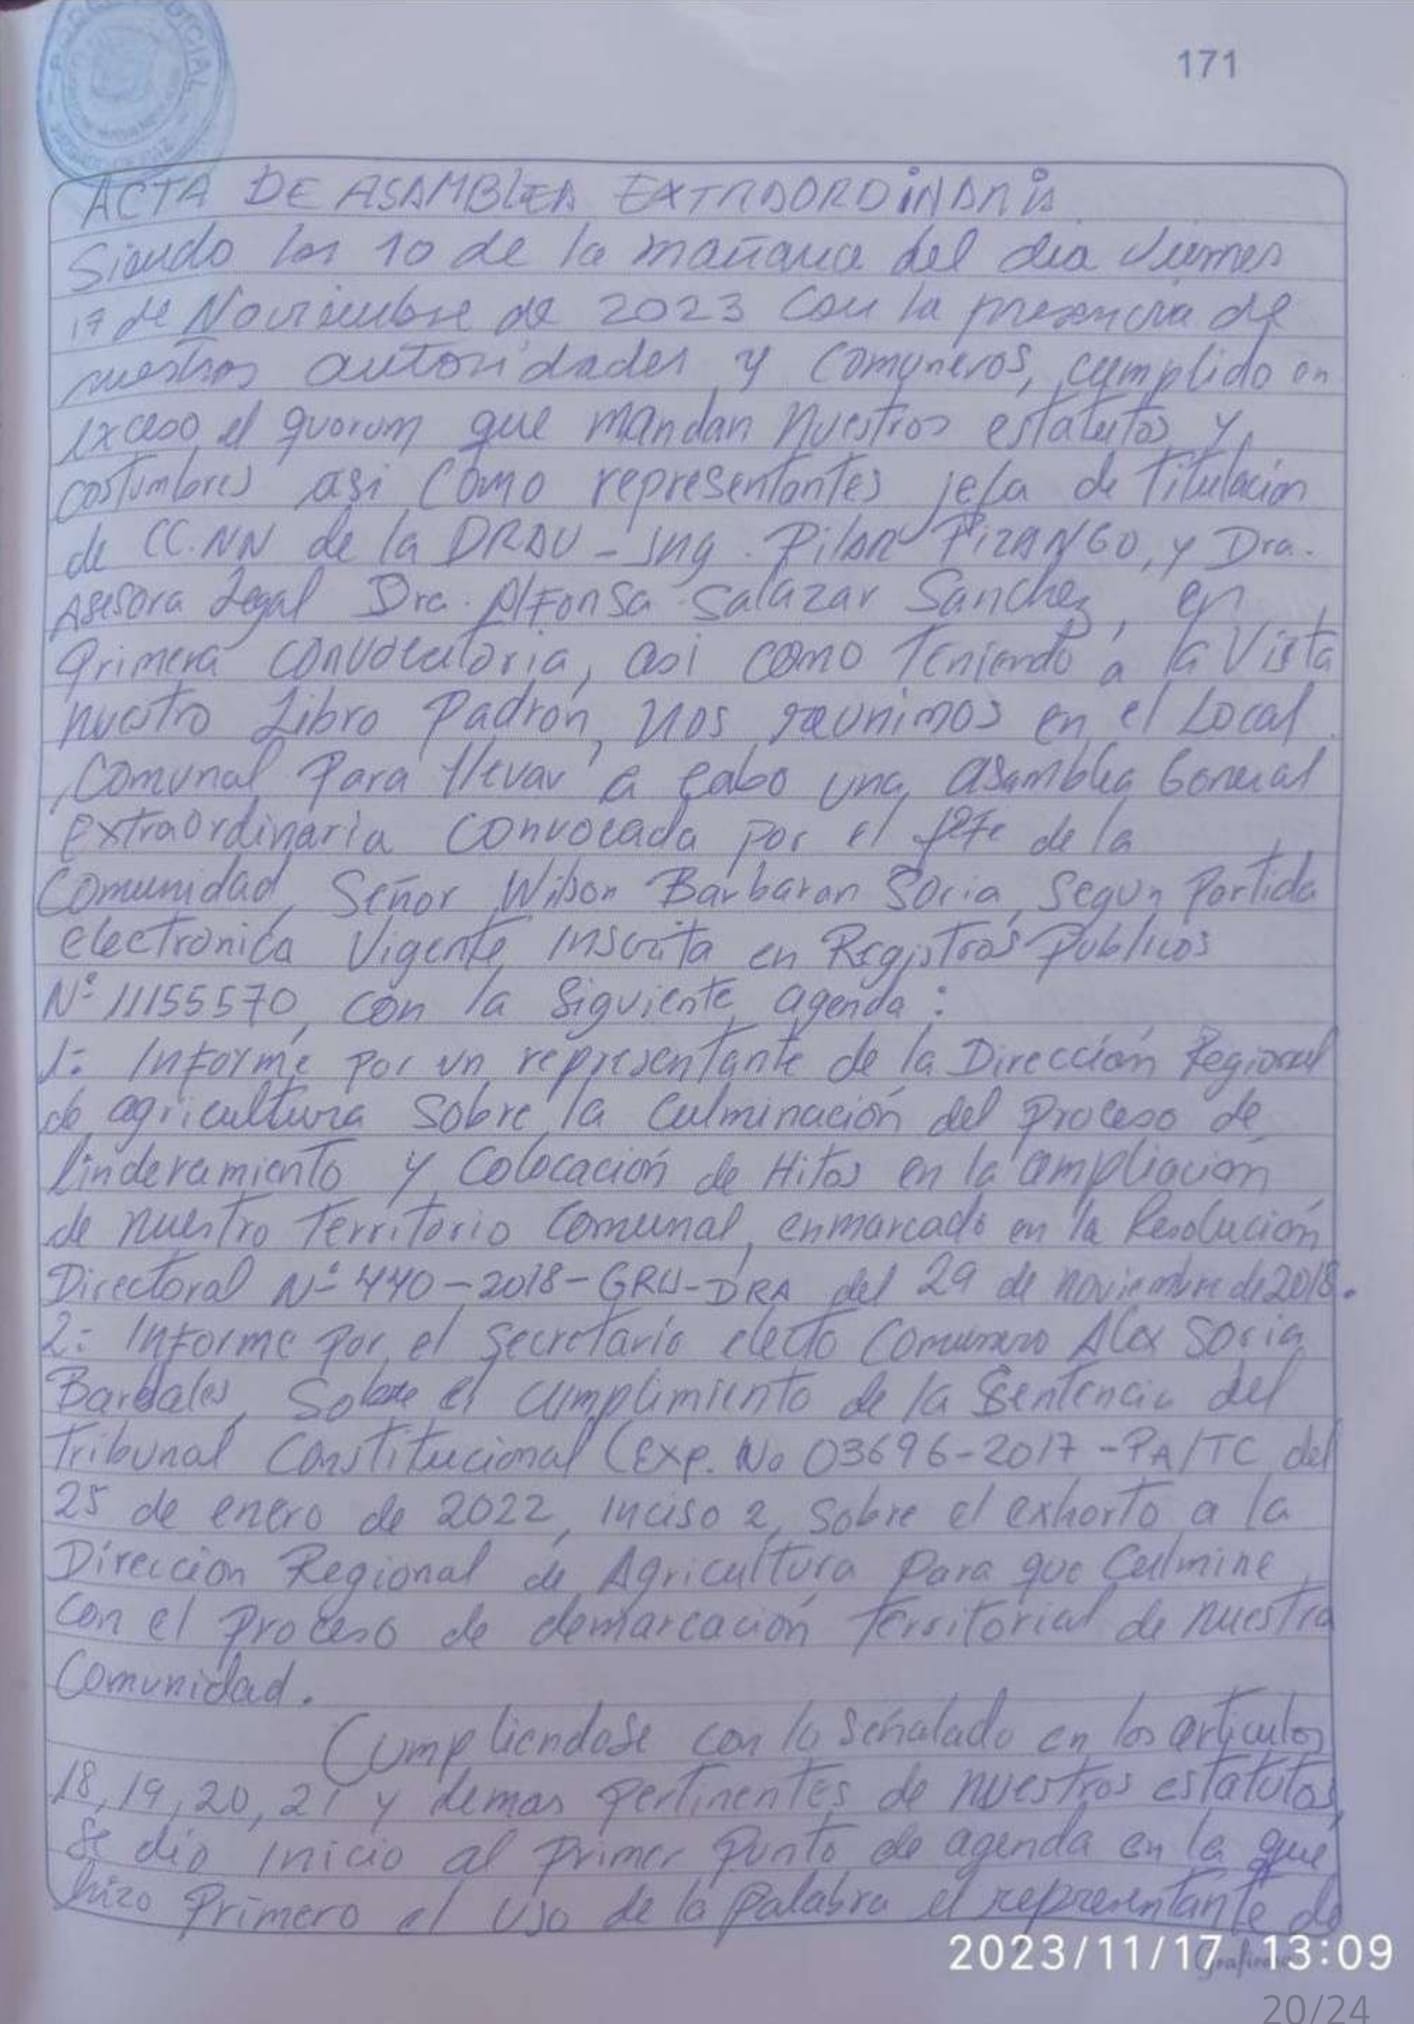 171
ACTA DE ASAMBLEA EXTRAORDINARIA
Siendo las 10 de la mañana del dia viernes
17 de Noviembre de 2023 con la presencia de
nuestras autoridades y comuneros, cumplido en
exceso el quorum que mandan nuestros estatutos y
costumbres asi como representantes jefa de Titulacion
de CC.NN de la DRAU - Ing. Pilar PIZANGO, y Dra.
Asesora Legal Dra. Alfonsa Salazar Sanchez, en
Primera convocatoria, asi como Teniendo a la Vista
nuestro Libro Padrón, nos reunimos en el Local
Comunal Para llevar a cabo una asamblea General
Extraordinaria convocada por el jefe de la
Comunidad, Señor Wilson Barbaran Soria, Segun Partida
electronica Vigente, inscrita en Registros Publicos
Nº 11155570, con la siguiente agenda:
1.- Informe por un representante de la Dirección Regional
de agricultura sobre la culminación del proceso de
linderamiento y colocación de Hitos en la ampliacion
de nuestro Territorio Comunal, enmarcado en la Resolución
Directoral Nº 440-2018-GRU-DRA del 29 de noviembre de 2018.
2.- Informe por el Secretario electo Comunero Alex Soria
Barbales, Sobre el cumplimiento de la Sentencia del
Tribunal Constitucional (Exp. No 03696-2017-PA/TC del
25 de enero de 2022, inciso 2, sobre el exhorto a la
Dirección Regional de Agricultura para que Culmine
con el proceso de demarcación Territorial de nuestra
Comunidad.
Cumpliendose con lo Señalado en los articulos
18, 19, 20, 21 y demas pertinentes de nuestros estatutos,
se dio inicio al primer punto de agenda en la que
hizo Primero el uso de la palabra el representante de
2023/11/17 13:09
20/24